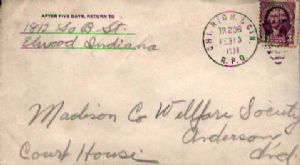 AFTER FIVE DAYS, RETURN TO
1812 So B St.
Elwood Indiana
CHI. RICH. & CIN.
TR 238
FEB 13
R.P.O.
Madison Co Wellfare Society
Anderson
Court House Ind